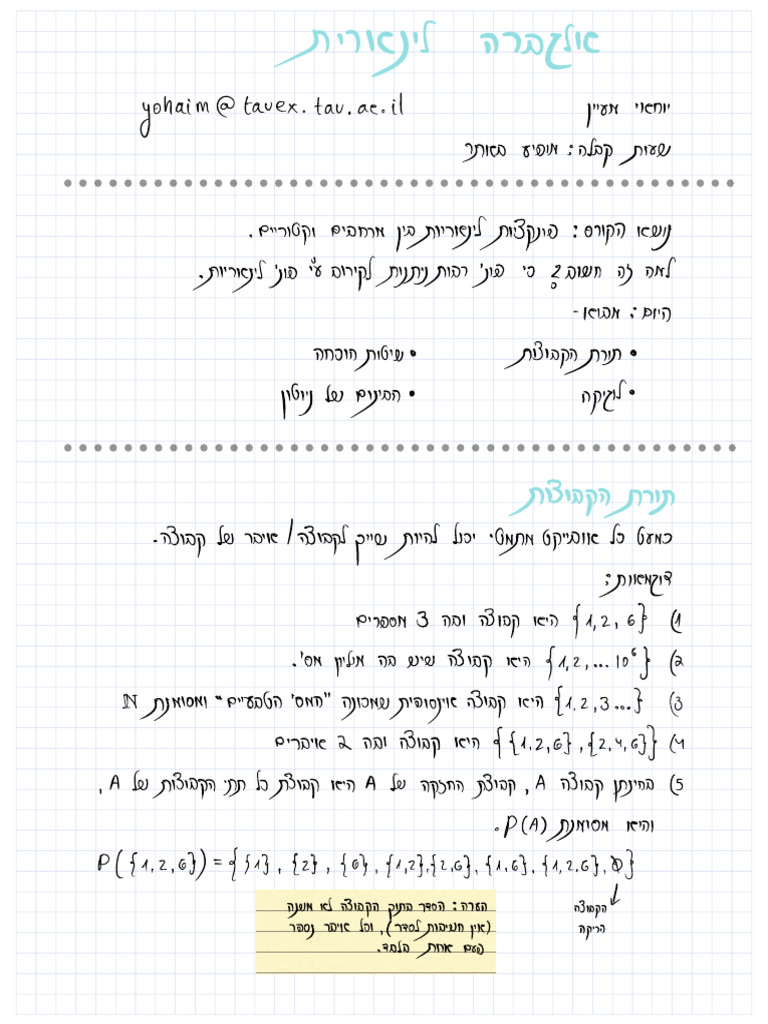 אלגברה לינארית
יוחאי מעיין yohaim@tauex.tau.ac.il
שעות קבלה: מופיע באתר
נושא הקורס: פונקציות לינאריות בין מרחבים וקטוריים.
למה זה חשוב? כי פונ' רבות ניתנות לקירוב ע"י פונ' לינאריות.
היום: מבוא -
• תורת הקבוצות • שיטות הוכחה
• לוגיקה • הבינום של ניוטון
תורת הקבוצות
כמעט כל אובייקט מתמטי יכול להיות שייך לקבוצה/איבר של קבוצה.
דוגמאות:
1) {1,2,6} היא קבוצה ובה 3 מספרים
2) {1,2,...10⁶} היא קבוצה שיש בה מיליון מס'.
3) {1,2,3...} היא קבוצה אינסופית שמכונה "המס' הטבעיים" ומסומנת ℕ
4) {{1,2,6},{2,4,6}} היא קבוצה ובה 2 איברים
5) בהינתן קבוצה A, קבוצת החזקה של A היא קבוצת כל תתי הקבוצות של A,
והיא מסומנת P(A).
P({1,2,6})={{1},{2},{6},{1,2},{2,6},{1,6},{1,2,6},∅}
הקבוצה
הריקה
הערה: הסדר בתוך הקבוצה לא משנה
(אין חשיבות לסדר), וכל איבר נספר
פעם אחת בלבד.